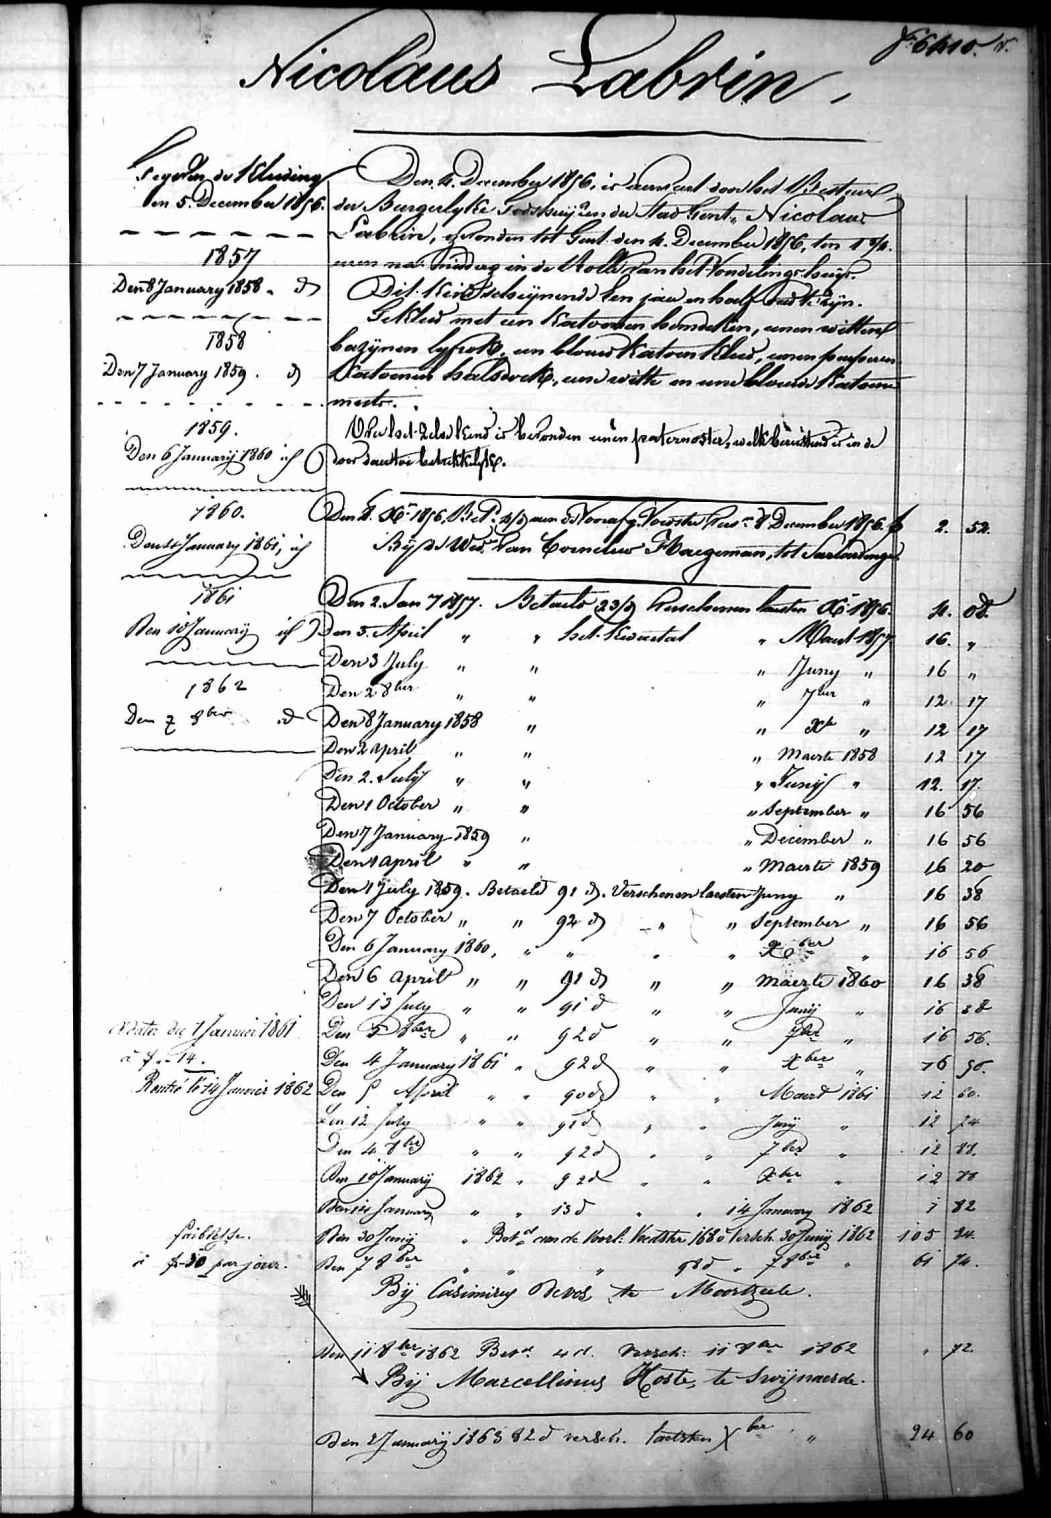 Nicolaus Labrin,
Gegeven de Kleeding
den 5. December 1856.
1857
Den 8 January 1858 " d
1858
Den 7 January 1859 . d
1859.
Den 6 Januarij 1860 id
1860.
Den 4 January 1861, id
1861
Den 10 Januarij id
1862
Den 7 8ber d
1 Janvier 1861
à f - 14.
Rentré le 14 Janvier 1862
faiblesse.
à f - 30 par jour.
Den 4. December 1856, is aenveerd door het Bestuer
der Burgerlyke Godshuijzen der Stad Gent, Nicolaus
Labrin, gevonden tot Gent den 4. December 1856, ten
uren na middag in de Rolle van het Vondelingshuys.
Dit Kind schijnende een jaer en half oud te zijn.
Gekleed met een Katoenen hemdeken, eenen witten
bazijnen lyfrok, een blouw Katoen Kleed, eenen purperen
Katoenen halsdoek, eene witte en eene blouwe Katoene
muts.
Op het zelve kind is bevonden eenen paternoster, welk berustende is in de
doos daertoe betrekkelyk.
Den 8. Xr 1856, Bet. aen de Voorsz. Voedster vers. 8 December 1856 f 2. 52
Bij de Wed. Van Cornelius Haegeman, tot
Den 2. Jan 1857. Betaeld 23/d verschenen laesten Xr 1856. 4. 08.
Den 5. April " " het Kwartael " Maert 1857 16. "
Den 3 July " " " Juny " 16 "
Den 2 8ber " " " 7ber " 12 17
Den 8 January 1858 " " Xr " 12 17
Den 2 April " " " Maerte 1858 12 17
Den 2. July " " " Junij " 12. 17.
Den 1 October " " " September " 16 56
Den 7 January 1859 " " December " 16 56
Den 1 April " " " Maerte 1859 16 20
Den 1 July 1859. Betaeld 91 d. Verschenen laesten Juny " 16 38
Den 7 October " " 92 d " " September " 16 56
Den 6 January 1860, " " " " Xber " 16 56
Den 6 April " " 91 d " " Maerte 1860 16 38
Den 13 July " " 91 d " " Junij " 16 38
Den 5 8bre " " 92 d " " 7ber " 16 56.
Den 4 January 1861 " 92 d " " Xber " 16 56.
Den 5 April " " 90 d " " Maert 1861 12 60.
Den 12 July " " 91 d " " Junij " 12 74
Den 4 8ber " " 92 d " " 7ber " 12 88.
Den 10 January 1862 " 92 d " " Xber " 12 88
Den 14 January " " 13 d " " 14 January 1862 1 82
Den 30 Junij " Betd aen de Voorl. Voedster 168 d Versch. 30 Junij 1862 105 84.
Den 7 8ber " " " 98 d " 7 8ber " 61 74.
Bij Casimirus Devos, te Moortzeele.
Den 11 8ber 1862 Betd 4 d. versch: 11 8ber 1862 " 72.
Bij Marcellinus Hoste, te Swijnaerde.
Den 2 Januarij 1863 82 d versch. laetsten Xber " 24 60